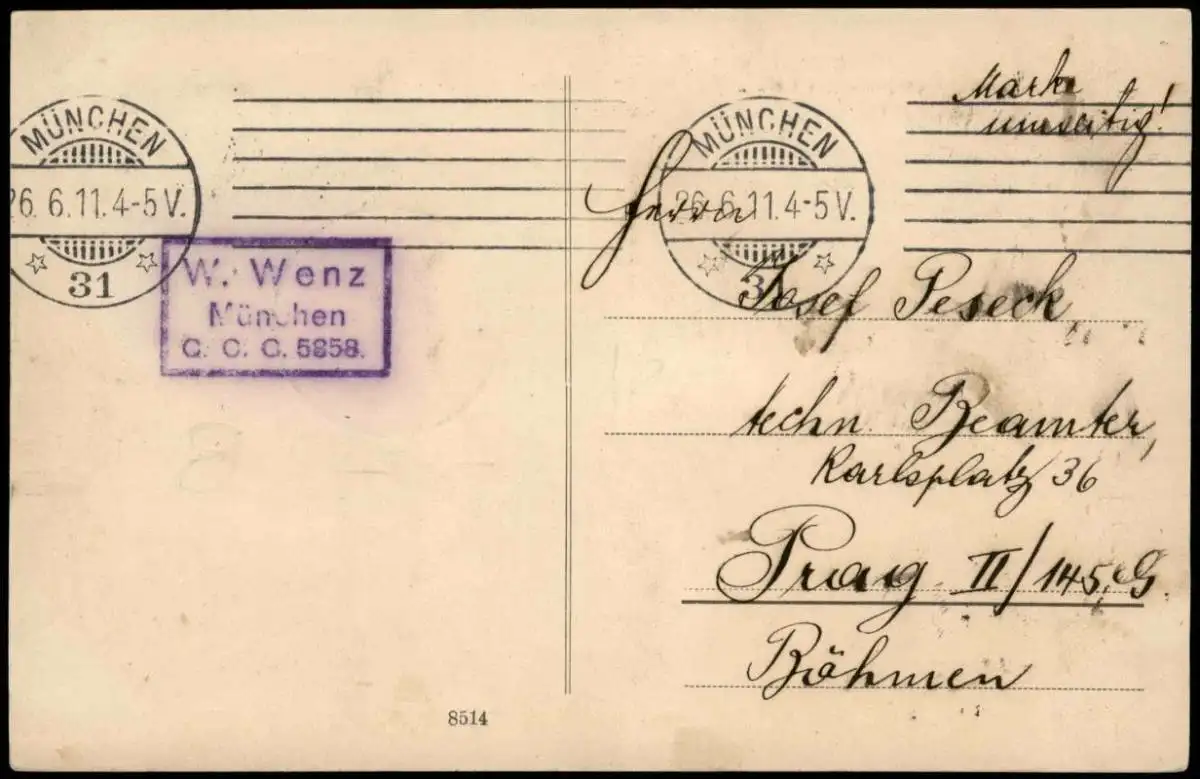 MÜNCHEN
26.6.11.4-5V.
31
W. Wenz
München
C. C. C. 5858.
8514
MÜNCHEN
26.6.11.4-5V.
31
Marke
umseitig!
Herrn
Josef Peseck,
techn. Beamter,
Karlsplatz 36
Prag II/145, G.
Böhmen